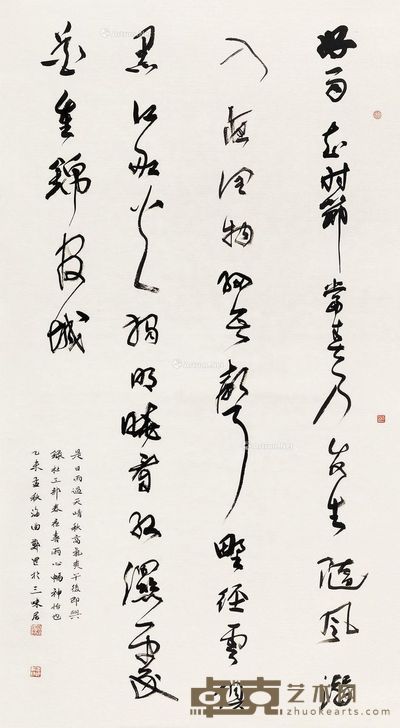 好雨知時節當春乃發生隨風潛
入夜潤物細無聲野徑雲俱
黑江船火獨明曉看紅濕處
花重錦官城
是日雨過天晴秋高氣爽午後即興
錄杜工部春夜喜雨心暢神怡也
乙未孟秋海曲鄭於三味居
卓克艺术网
zhuokearts.com